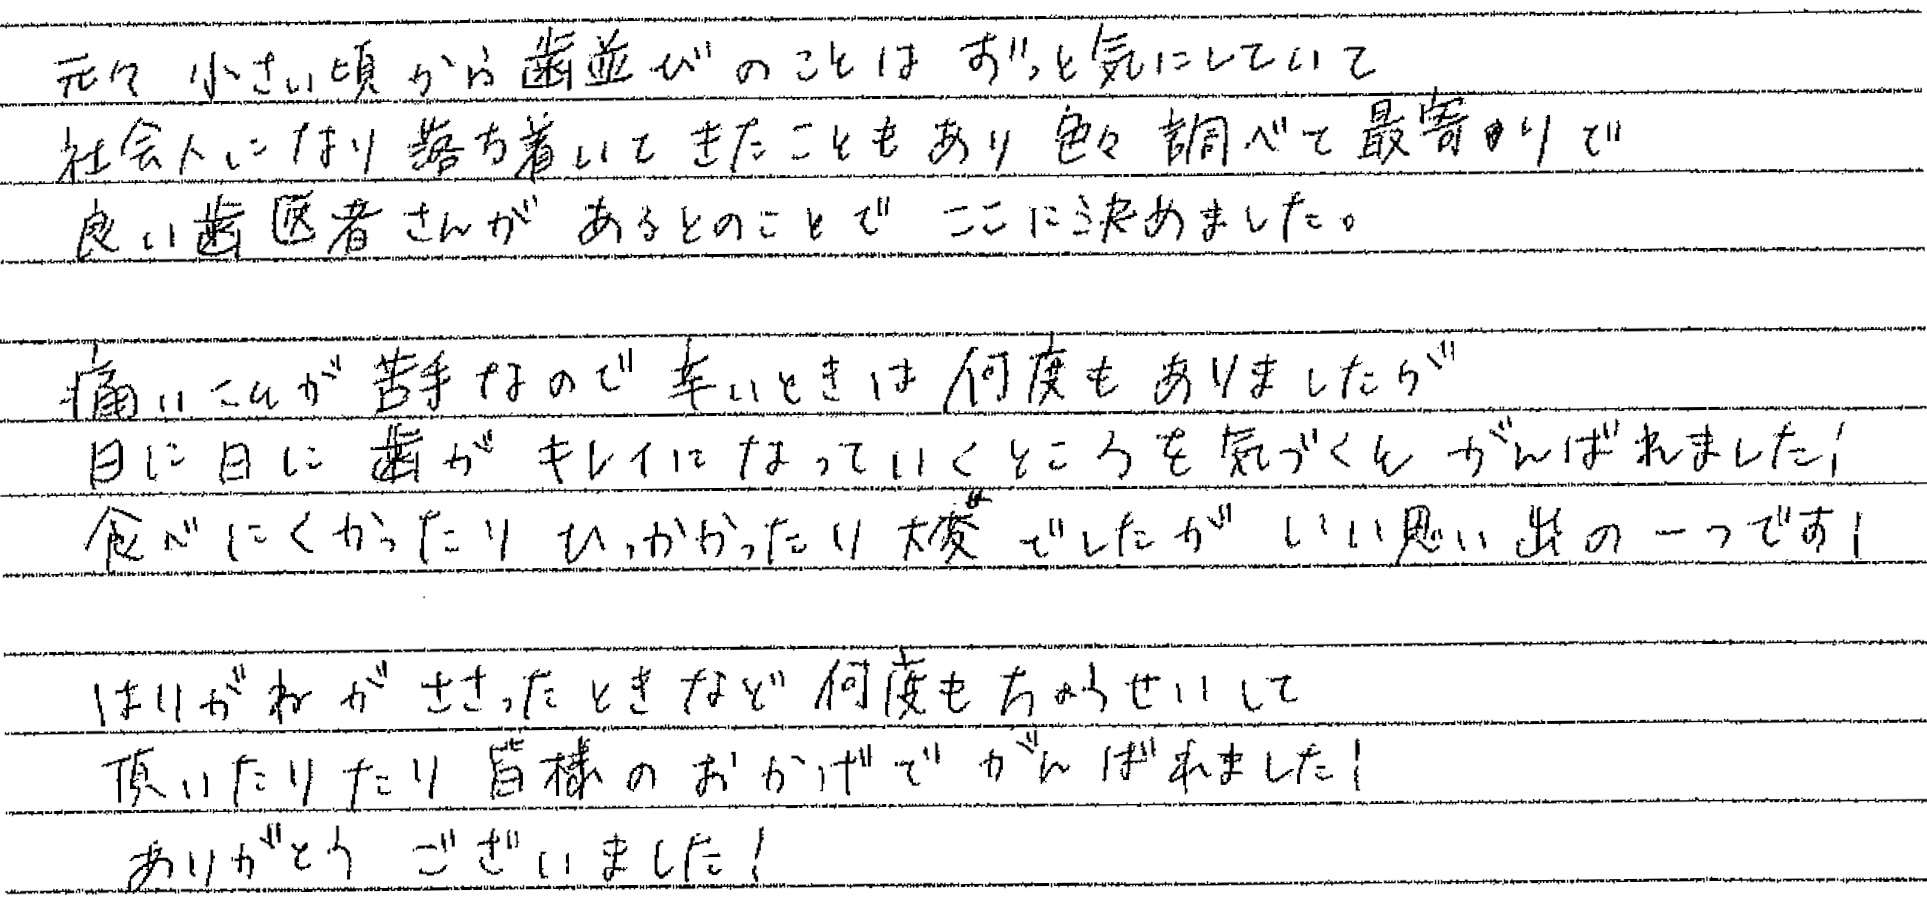 元々 小さい頃から歯並びのことは ずっと気にしていて
社会人になり 落ち着いてきたこともあり 色々 調べて最寄りで
良い歯医者さんが あるとのことで ここに決めました。
痛いこんが 苦手なので 辛いときは 何度も ありましたが
日に日に 歯が キレイになっていくところを 気づくん がんばれました!
食べにくかったり ひっかかったり 大変でしたが いい思い出の一つです!
はりがねが ささったときなど 何度も ちょうせいして
頂いたりたり 皆様の おかげで がんばれました!
ありがとう ございました!